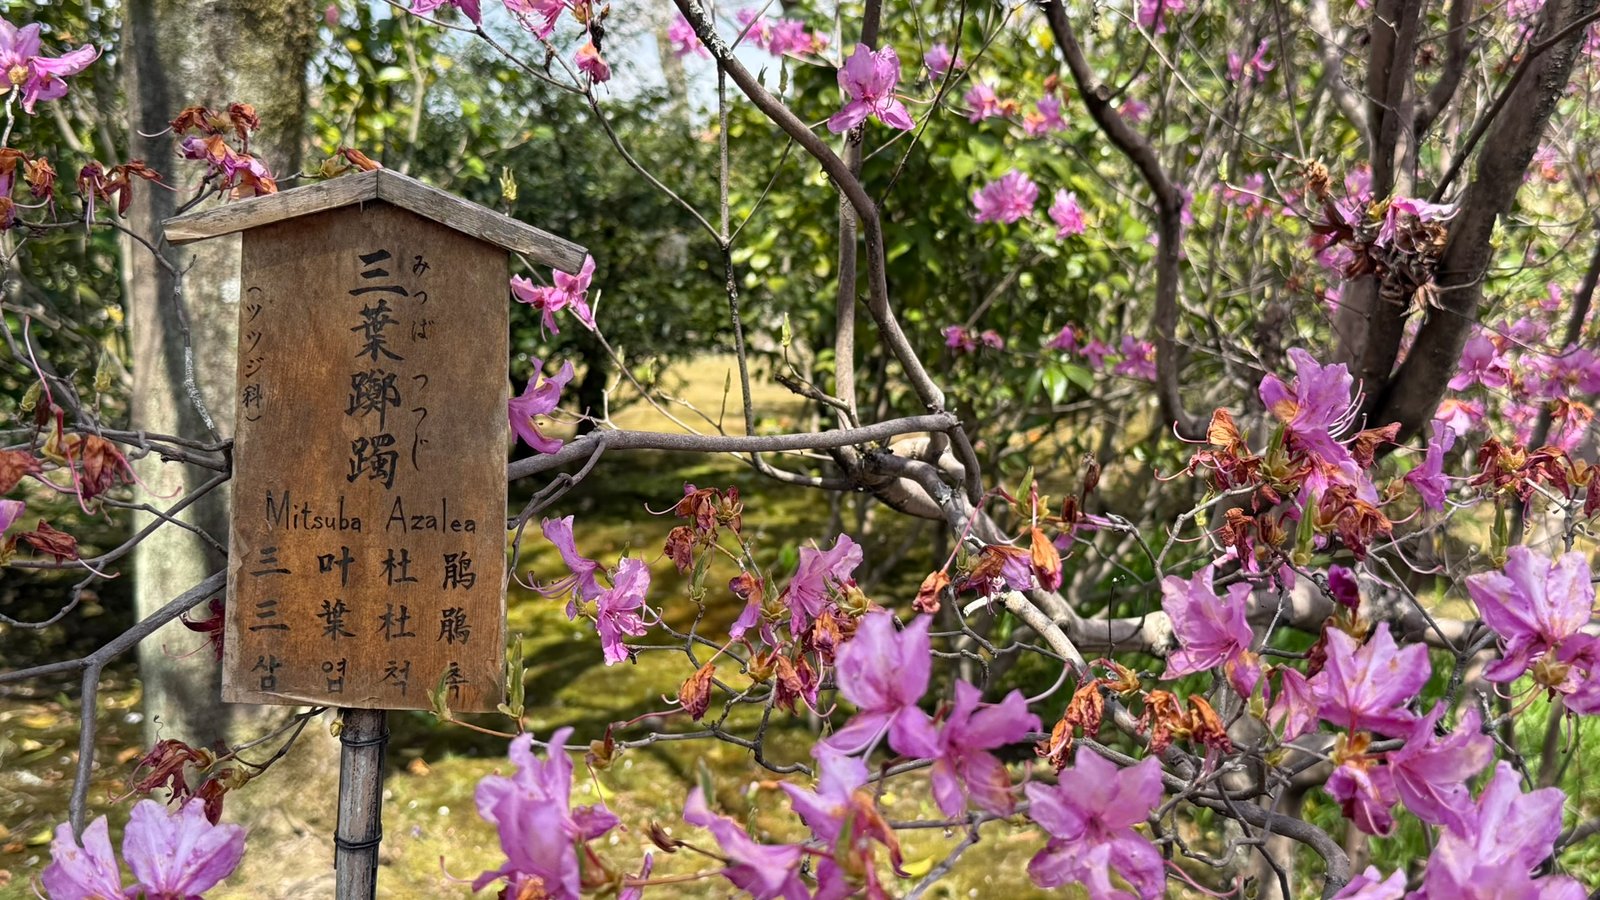 三葉躑躅
みつば つつじ
(ツツジ科)
Mitsuba Azalea
三叶杜鹃
三葉杜鵑
삼엽척촉